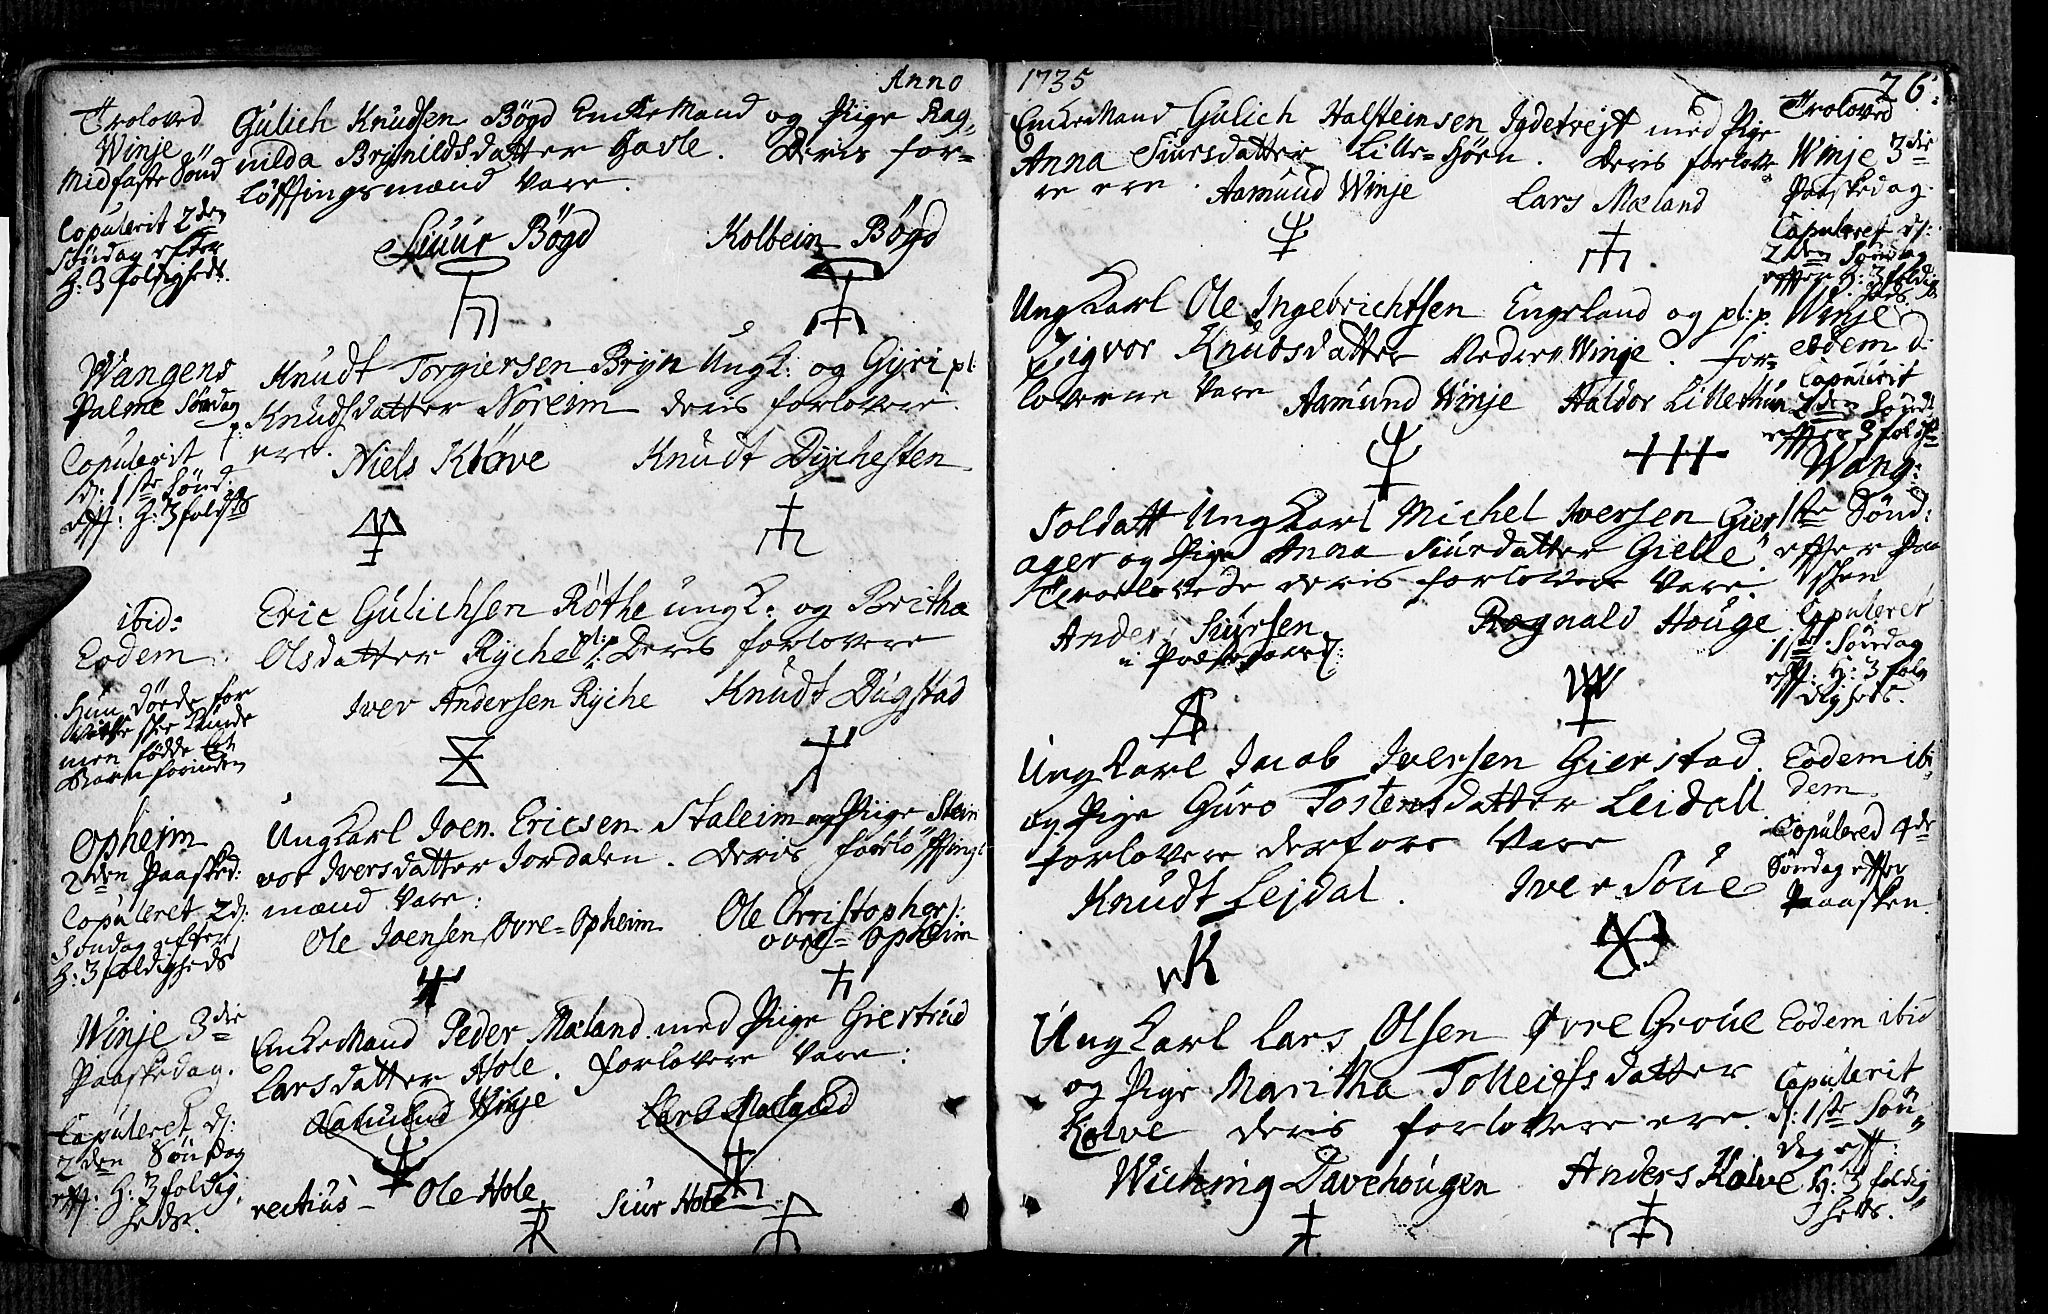 Anno
Troloved
Winje
Midfaste Sønd
Copulerit 2den
Søndag efter
H: 3foldigheds.
Gulich Knudsen Bögd Enke Mand og Pige Rag,
nilda Brynildsdatter Havle. Deris for=
löffingsmænd vare.
Siuur Bögd Kolbein Bögd
Wangens
Palme Søndag
Copulerit
d: 1ste Sønd:
eff: H: 3foldgds
Knudt Torgiersen Bryn UngK: og Gyri pl:
Knudsdatter Noreim deris forlovere
ere.
Niels Klöve Knudt Dychesten
ibid:
Eodem:
Hun döde for
men födde Et
Barn forinden
Eric Gulichsen Röthe ungK: og Britha
Olsdatter Ryche pl:p: Deris forlovere
Iver Andersen Ryche Knudt Dugstad
Opheim
2den Paasked:
Copuleret 2d:
Söndag efter
H: 3foldigheds
UngKarl Joen Ericsen Staleim og Piige Stein
vor Iversdatter Jordalen. Deris forlöffings
mænd vare:
Ole Joensen Ovre=Opheim Ole Christophers:
ovre=opheim
Winje 3die
Paaskedag.
Copuleret d:
2den Søndag
eff: H: 3foldig,
heds.
EnkeMand Peder Mæland med Piige Giertrud
Larsdatter Hole. Forlovere vare:
Aamund Winje Lars Mæland
rectius – Ole Hole Siur Hole
1735
76.
EnkeMand Gulich Halsteinsen Jgdetvejt med Pige
Anna Siursdatter Lille=Höen. Deris forlove
re ere.
Aamund Winje Lars Mæland
Troloved
Winje 3die
Paaskedag.
Copuleret d:
2den Søndag
efter H: 3foldig
heds.
UngKarl Ole Ingebrichtsen Engeland og pl:p:
Zigvor Knudsdatter Nedere Winje. for=
loverne vare
Aamund Winje Haldor Lillethun
Winje
eodem d:
Copulerit
2den Sønd:
efter 3foldgh
Soldatt UngKarl Michel Iversen Gier
ager og Pige Anna Siursdatter Gielle.
Troelovede deris forlovere vare.
Anders Siursen
i Præstegaard:
Ragnald Houge
Wang:
1ste Sønd:
effter Paa
schen
Copuleret
1ste Søndag
eff: H: 3fol
digheds.
UngKarl Jacob Iversen Gierstad.
og Pige Guro Tostensdatter Leidall.
forlovere derfore Vare
Knudt Lejdal. Iver Soue
Eodem ibi
dem
Copulered 4de
Søndag effter
Paasken.
UngKarl Lars Olsen Øvre Groue
og Pige Maritha Tolleifsdatter
Kolve deris forlovere ere.
Wiching Davehougen Anders Kolve
Eodem ibid
Copulerit
d: 1ste Søn„
dag eff:
H: 3foldig
heds.